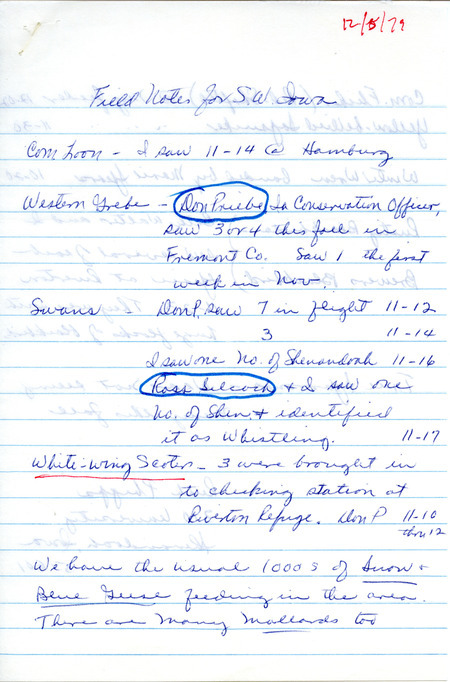 12/5/79
Field Notes for S.W. Iowa
Com Loon - I saw 11-14 @ Hamburg
Western Grebe - Don Priebe, Ia Conservation Officer,
saw 3 or 4 this fall in
Fremont Co. Saw 1 the first
week in Nov.
Swans Don P. saw 7 in flight 11-12
3 11-14
I saw one No. of Shenandoah 11-16
Ross Silcock & I saw one
No. of Shen. & identified
it as Whistling. 11-17
White-wing Scoter - 3 were brought in
to checking station at
Riverton Refuge. Don P 11-10
thru 12
We have the usual 1000s of Snow &
Blue Geese feeding in the area.
There are many Mallards too